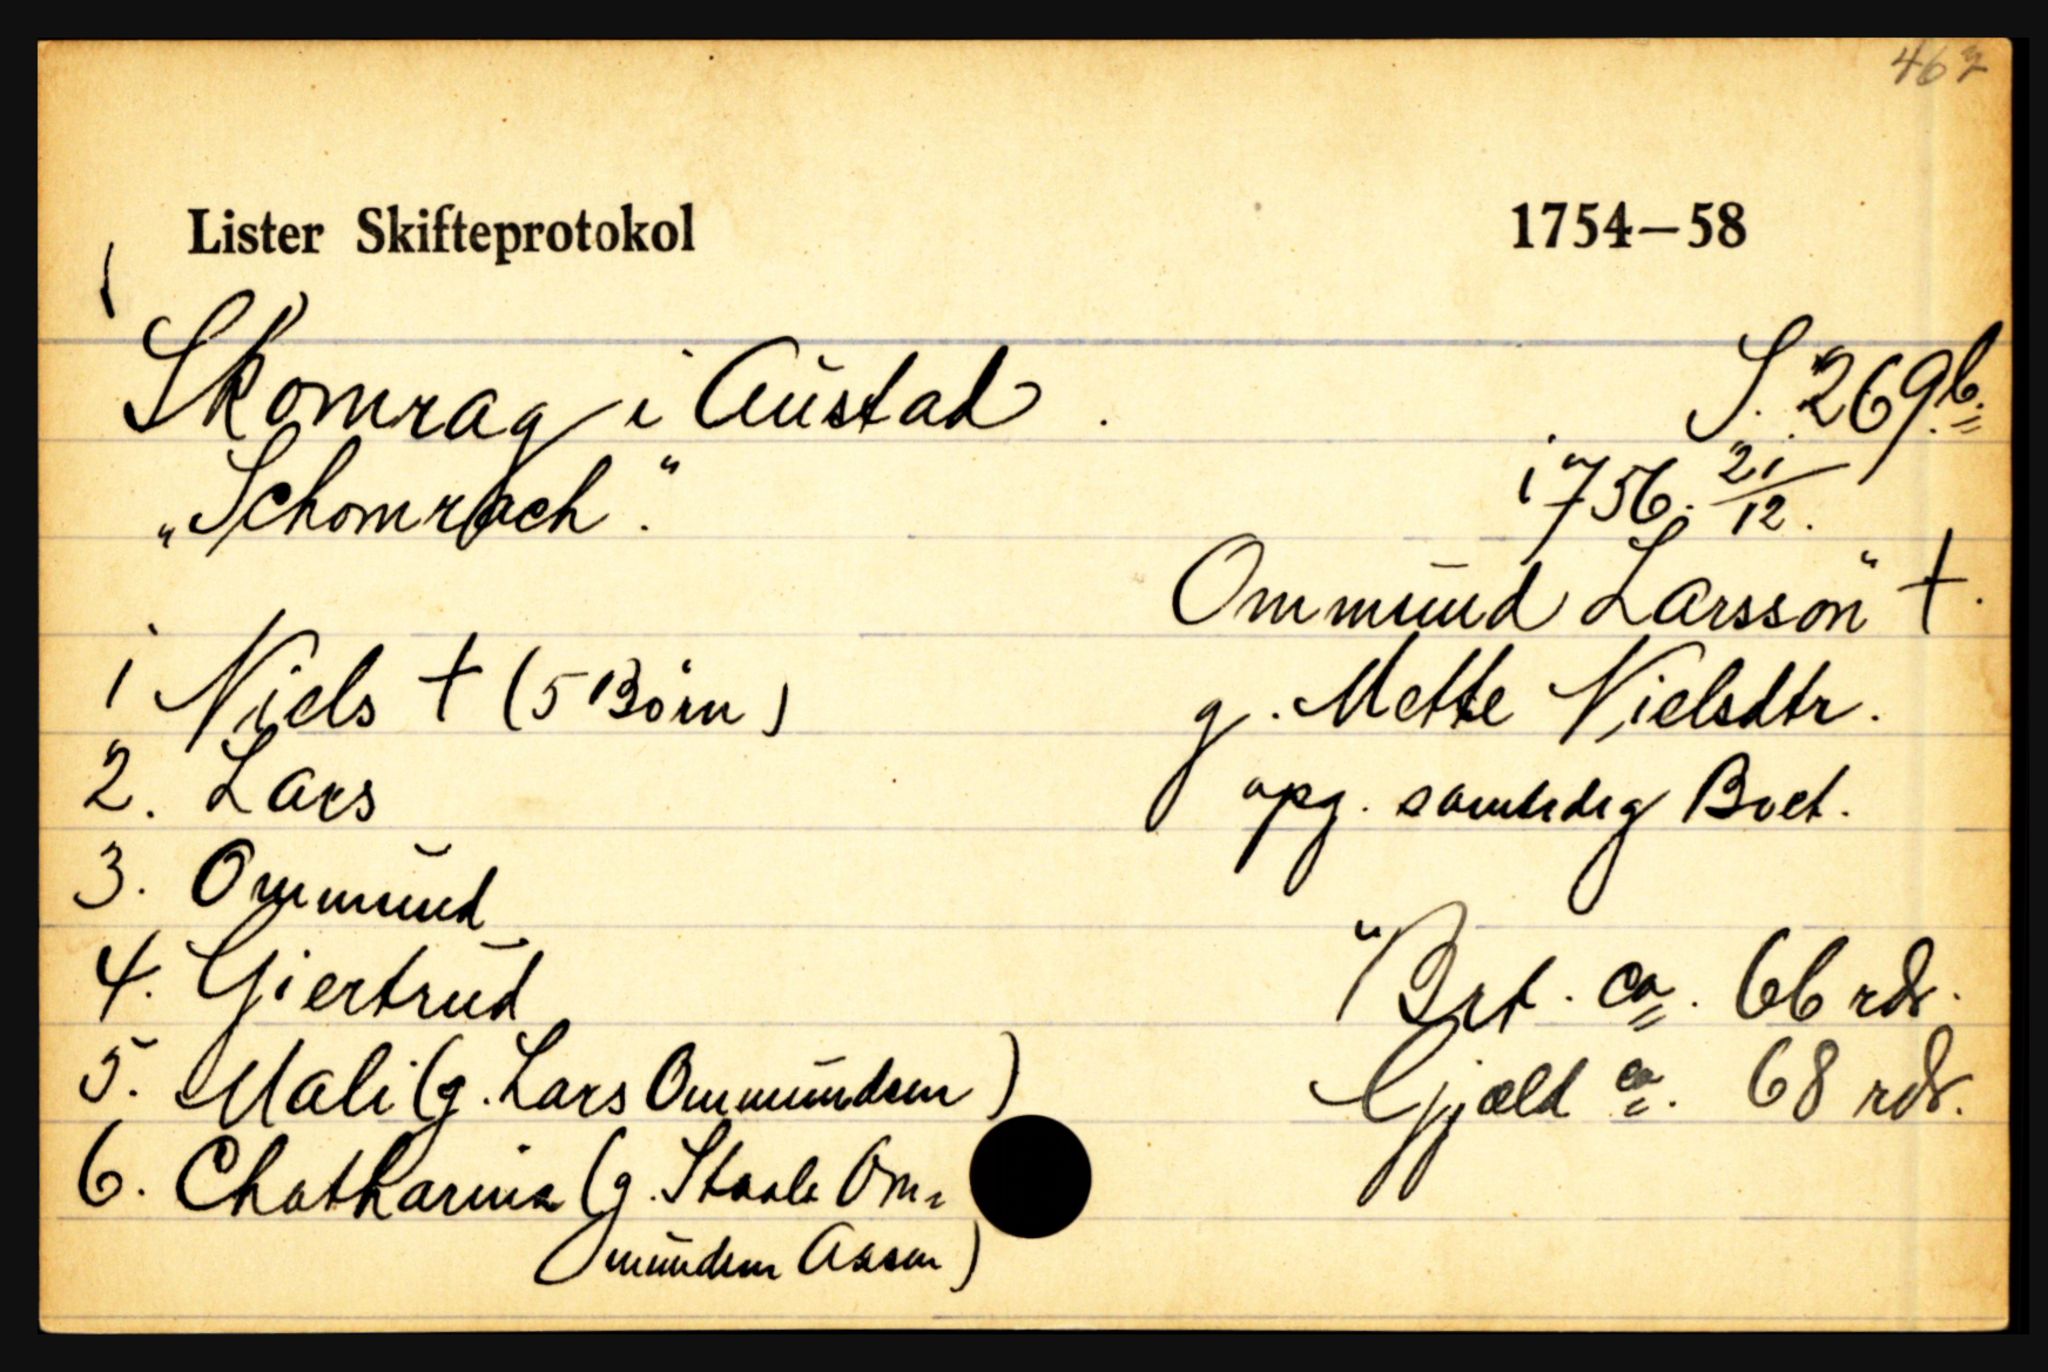 462
Lister Skifteprotokol 1754—58
Skomrag i Austad. S. 269b.
"Schomrach". 1756. 21/12.
Ommund Larsson" †.
1 Niels † (5 Börn) g. Mette Nielsdtr.
2. Lars opg. samtidig Boet.
3. Ommund
4. Giertrud "Brt. ca. 66 rdr.
5. Mali (g. Lars Ommundsen) Gjæld ca. 68 rdr.
6. Chatharina (g. Staale Om-
mundsen Aasen)